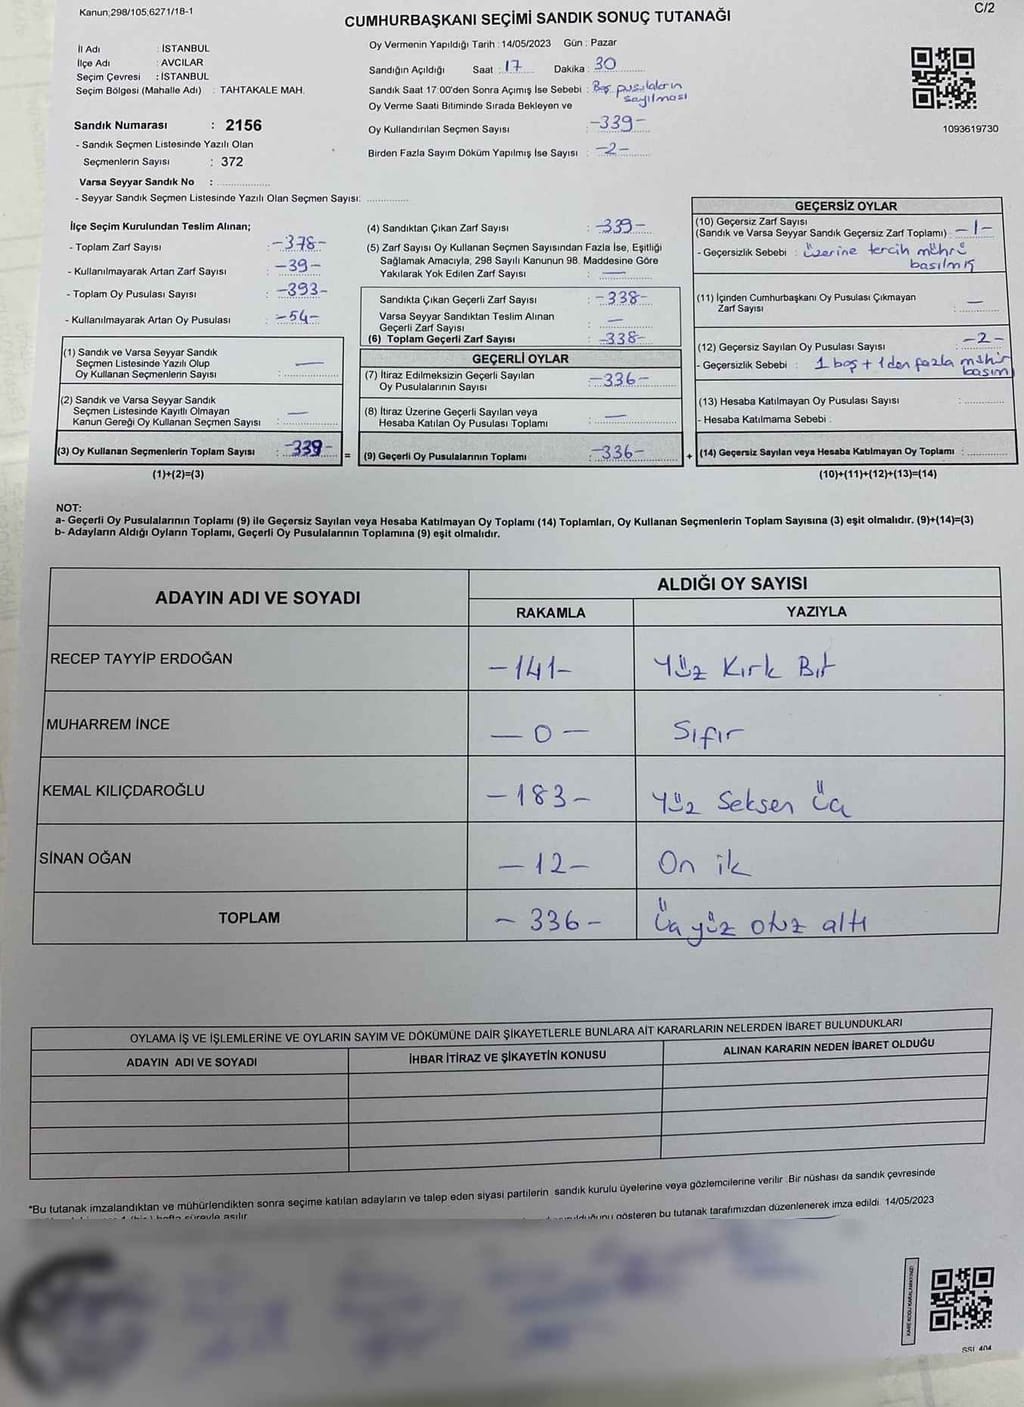 Kanun;298/105;6271/18-1
C/2
CUMHURBAŞKANI SEÇİMİ SANDIK SONUÇ TUTANAĞI
İl Adı : İSTANBUL
İlçe Adı : AVCILAR
Seçim Çevresi : İSTANBUL
Seçim Bölgesi (Mahalle Adı) : TAHTAKALE MAH.
Sandık Numarası : 2156
- Sandık Seçmen Listesinde Yazılı Olan
Seçmenlerin Sayısı : 372
Varsa Seyyar Sandık No :
- Seyyar Sandık Seçmen Listesinde Yazılı Olan Seçmen Sayısı:
Oy Vermenin Yapıldığı Tarih : 14/05/2023 Gün : Pazar
Sandığın Açıldığı Saat : 17 Dakika : 30
Sandık Saat 17:00'den Sonra Açımış İse Sebebi : Boş pusulaların
sayılması
Oy Verme Saati Bitiminde Sırada Bekleyen ve
Oy Kullandırılan Seçmen Sayısı : -339-
Birden Fazla Sayım Döküm Yapılmış İse Sayısı : -2-
1093619730
İlçe Seçim Kurulundan Teslim Alınan;
- Toplam Zarf Sayısı : -378-
- Kullanılmayarak Artan Zarf Sayısı : -39-
- Toplam Oy Pusulası Sayısı : -393-
- Kullanılmayarak Artan Oy Pusulası : -54-
(1) Sandık ve Varsa Seyyar Sandık
Seçmen Listesinde Yazılı Olup
Oy Kullanan Seçmenlerin Sayısı : —
(2) Sandık ve Varsa Seyyar Sandık
Seçmen Listesinde Kayıtlı Olmayan
Kanun Gereği Oy Kullanan Seçmen Sayısı : —
(3) Oy Kullanan Seçmenlerin Toplam Sayısı : -339-
(1)+(2)=(3)
=
(4) Sandıktan Çıkan Zarf Sayısı : -339-
(5) Zarf Sayısı Oy Kullanan Seçmen Sayısından Fazla İse, Eşitliği
Sağlamak Amacıyla, 298 Sayılı Kanunun 98. Maddesine Göre
Yakılarak Yok Edilen Zarf Sayısı : —
Sandıkta Çıkan Geçerli Zarf Sayısı : -338-
Varsa Seyyar Sandıktan Teslim Alınan
Geçerli Zarf Sayısı : —
(6) Toplam Geçerli Zarf Sayısı : -338-
GEÇERLİ OYLAR
(7) İtiraz Edilmeksizin Geçerli Sayılan
Oy Pusulalarının Sayısı : -336-
(8) İtiraz Üzerine Geçerli Sayılan veya
Hesaba Katılan Oy Pusulası Toplamı : —
(9) Geçerli Oy Pusulalarının Toplamı : -336-
+
GEÇERSİZ OYLAR
(10) Geçersiz Zarf Sayısı
(Sandık ve Varsa Seyyar Sandık Geçersiz Zarf Toplamı) : -1-
- Geçersizlik Sebebi : üzerine tercih mührü
basılmış
(11) İçinden Cumhurbaşkanı Oy Pusulası Çıkmayan
Zarf Sayısı : —
(12) Geçersiz Sayılan Oy Pusulası Sayısı : -2-
- Geçersizlik Sebebi : 1 boş + 1 den fazla mühür
basım
(13) Hesaba Katılmayan Oy Pusulası Sayısı :
- Hesaba Katılmama Sebebi :
(14) Geçersiz Sayılan veya Hesaba Katılmayan Oy Toplamı :
(10)+(11)+(12)+(13)=(14)
NOT:
a- Geçerli Oy Pusulalarının Toplamı (9) ile Geçersiz Sayılan veya Hesaba Katılmayan Oy Toplamı (14) Toplamları, Oy Kullanan Seçmenlerin Toplam Sayısına (3) eşit olmalıdır. (9)+(14)=(3)
b- Adayların Aldığı Oyların Toplamı, Geçerli Oy Pusulalarının Toplamına (9) eşit olmalıdır.
ADAYIN ADI VE SOYADI
ALDIĞI OY SAYISI
RAKAMLA YAZIYLA
RECEP TAYYİP ERDOĞAN -141- Yüz Kırk Bir
MUHARREM İNCE -0- Sıfır
KEMAL KILIÇDAROĞLU -183- Yüz Seksen Üç
SİNAN OĞAN -12- On ik
TOPLAM -336- Üç yüz otuz altı
OYLAMA İŞ VE İŞLEMLERİNE VE OYLARIN SAYIM VE DÖKÜMÜNE DAİR ŞİKAYETLERLE BUNLARA AİT KARARLARIN NELERDEN İBARET BULUNDUKLARI
ADAYIN ADI VE SOYADI İHBAR İTİRAZ VE ŞİKAYETİN KONUSU ALINAN KARARIN NEDEN İBARET OLDUĞU
*Bu tutanak imzalandıktan ve mühürlendikten sonra seçime katılan adayların ve talep eden siyasi partilerin sandık kurulu üyelerine veya gözlemcilerine verilir .Bir nüshası da sandık çevresinde
gösteren bu tutanak tarafımızdan düzenlenerek imza edildi. 14/05/2023